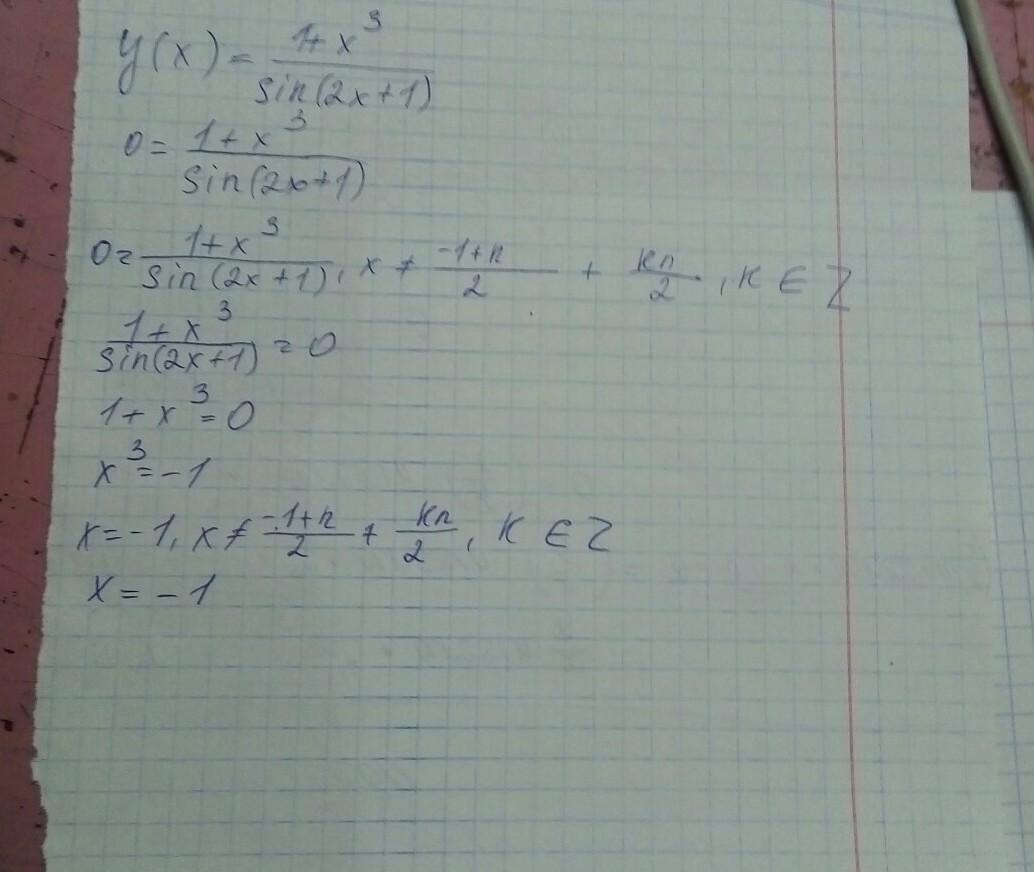 y(x) = (1+x³)/(sin(2x+1))
0 = (1+x³)/(sin(2x+1))
0 = (1+x³)/(sin(2x+1)), x ≠ (-1+π)/2 + (kπ)/2, K ∈ Z
(1+x³)/(sin(2x+1)) = 0
1+x³ = 0
x³ = -1
x = -1, x ≠ (-1+π)/2 + (kπ)/2, K ∈ Z
x = -1